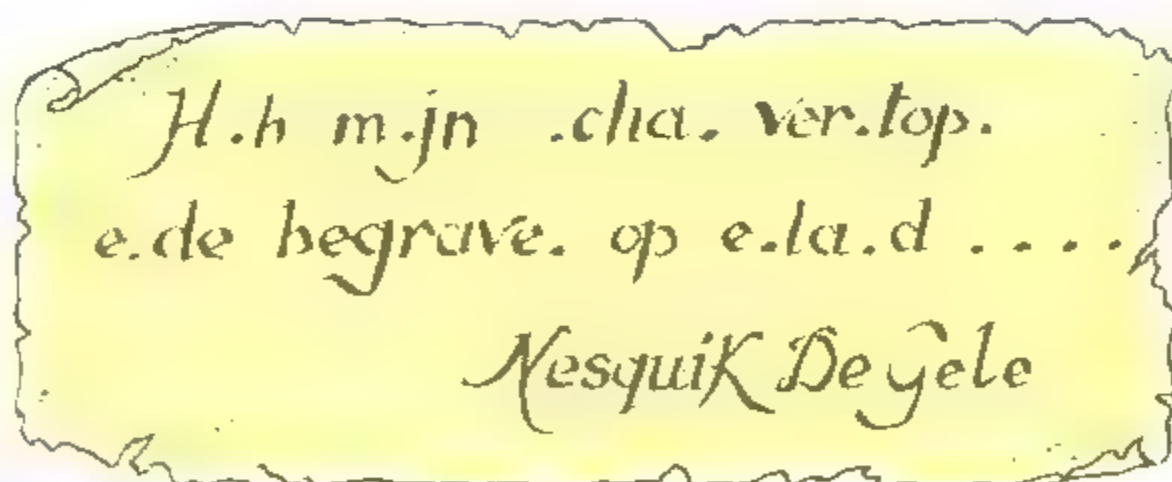 H.h m.jn .cha. ver.top.
e.de begrave. op e.la.d ....
NesquiK De Gele